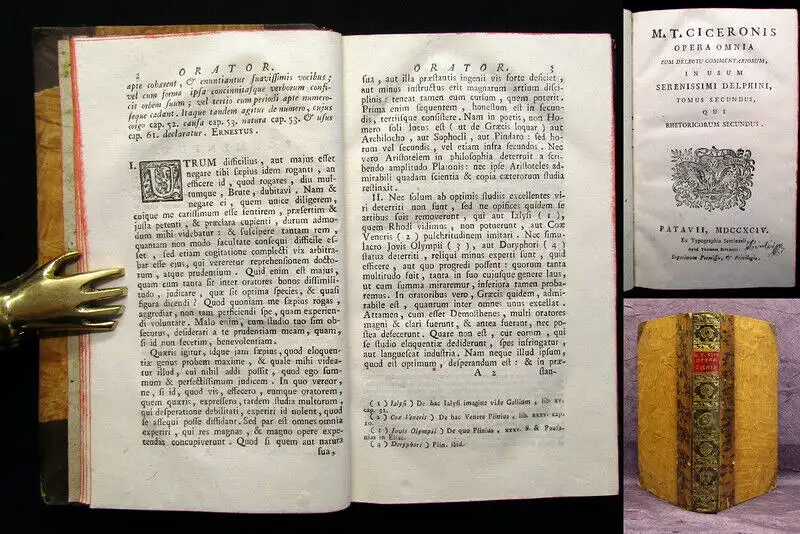 2
ORATOR.
apte cohæreant, & enuntiantur suavissimis vocibus;
vel cum forma ipsa concinnitasque verborum confi-
cit orbem suum; vel tertio cum periodi apte numero-
seque cadant. Itaque tandem agitur de numero, cujus
origo cap. 52. causa cap. 53. natura cap. 53. & usus
cap. 61. declaratur. ERNESTUS.
I. UTRUM difficilius, aut majus esset
negare tibi sæpius idem roganti, an
efficere id, quod rogares, diu mul-
tumque, Brute, dubitavi. Nam &
negare ei, quem unice diligerem,
cuique me carissimum esse sentirem, præsertim &
justa petenti, & præclara cupienti, durum admo-
dum mihi videbatur: & suscipere tantam rem,
quantam non modo facultate consequi difficile es-
set, sed etiam cogitatione complecti vix arbitra-
bar esse ejus, qui vereretur reprehensionem docto-
rum, atque prudentium. Quid enim est majus,
quam cum tanta sit inter oratores bonos dissimili-
tudo, judicare, quæ sit optima species, & quasi
figura dicendi? Quod quoniam me sæpius rogas,
aggrediar, non tam perficiendi spe, quam experien-
di voluntate. Malo enim, cum studio tuo sim ob-
secutus, desiderari a te prudentiam meam, quam,
si id non fecerim, benevolentiam.
Quæris igitur, idque jam sæpius, quod eloquen-
tiæ genus probem maxime, & quale mihi videa-
tur illud, cui nihil addi possit, quod ego sum-
mum & perfectissimum judicem. In quo vereor,
ne, si id, quod vis, effecero, eumque oratorem,
quem quæris, expressero, tardem studia multorum,
qui desperatione debilitati, experiri id nolent, quod
se assequi posse diffidant. Sed par est omnes omnia
experiri, qui res magnas, & magno opere expe-
tendas concupiverunt. Quod si quem aut natura
sua,
ORATOR. 3
sua, aut illa præstantis ingenii vis forte deficiet,
aut minus instructus erit magnarum artium disci-
plinis: teneat tamen eum cursum, quem poterit.
Prima enim sequentem, honestum est in secun-
dis, tertiisque consistere. Nam in poetis, non Ho-
mero soli locus est (ut de Græcis loquar) aut
Archilocho, aut Sophocli, aut Pindaro: sed ho-
rum vel secundis, vel etiam infra secundos. Nec
vero Aristotelem in philosophia deterruit a scri-
bendo amplitudo Platonis: nec ipse Aristoteles ad-
mirabili quadam scientia & copia cæterorum studia
restinxit.
II. Nec solum ab optimis studiis excellentes vi-
ri deterriti non sunt, sed ne opifices quidem se
artibus suis removerunt, qui aut Ialysi (1),
quem Rhodi vidimus, non potuerunt, aut Coæ
Veneris (2) pulchritudinem imitari. Nec simu-
lacro Jovis Olympii (3), aut Doryphori (4)
statua deterriti, reliqui minus experti sunt, quid
efficere, aut quo progredi possent: quorum tanta
multitudo fuit, tanta in suo cujusque genere laus,
ut cum summa miraremur, inferiora tamen proba-
remus. In oratoribus vero, Græcis quidem, admi-
rabile est, quantum inter omnes unus excellat.
Attamen, cum esset Demosthenes, multi oratores
magni & clari fuerunt, & antea fuerant, nec po-
stea defecerunt. Quare non est, cur eorum, qui
se studio eloquentiæ dediderunt, spes infringatur,
aut languescat industria. Nam neque illud ipsum,
quod est optimum, desperandum est: & in præ-
A 2 stan-
(1) Ialysi) De hac Ialysi imagine vide Gellium, lib. xv.
cap. 31.
(2) Coæ Veneris) De hac Venere Plinius, lib. xxxv. cap.
10.
(3) Jovis Olympii) De quo Plinius, xxxv. 8. & Pausa-
nias in Eliac.
(4) Doryphori) Plin. ibid.
M. T. CICERONIS
OPERA OMNIA
CUM DELECTU COMMENTARIORUM,
IN USUM
SERENISSIMI DELPHINI,
TOMUS SECUNDUS,
QUI
RHETORICORUM SECUNDUS.
PATAVII, MDCCXCIV.
Ex Typographia Seminarii
Superiorum Permissu, & Privilegio.
M. T. CICE
OPERA
OMNIA